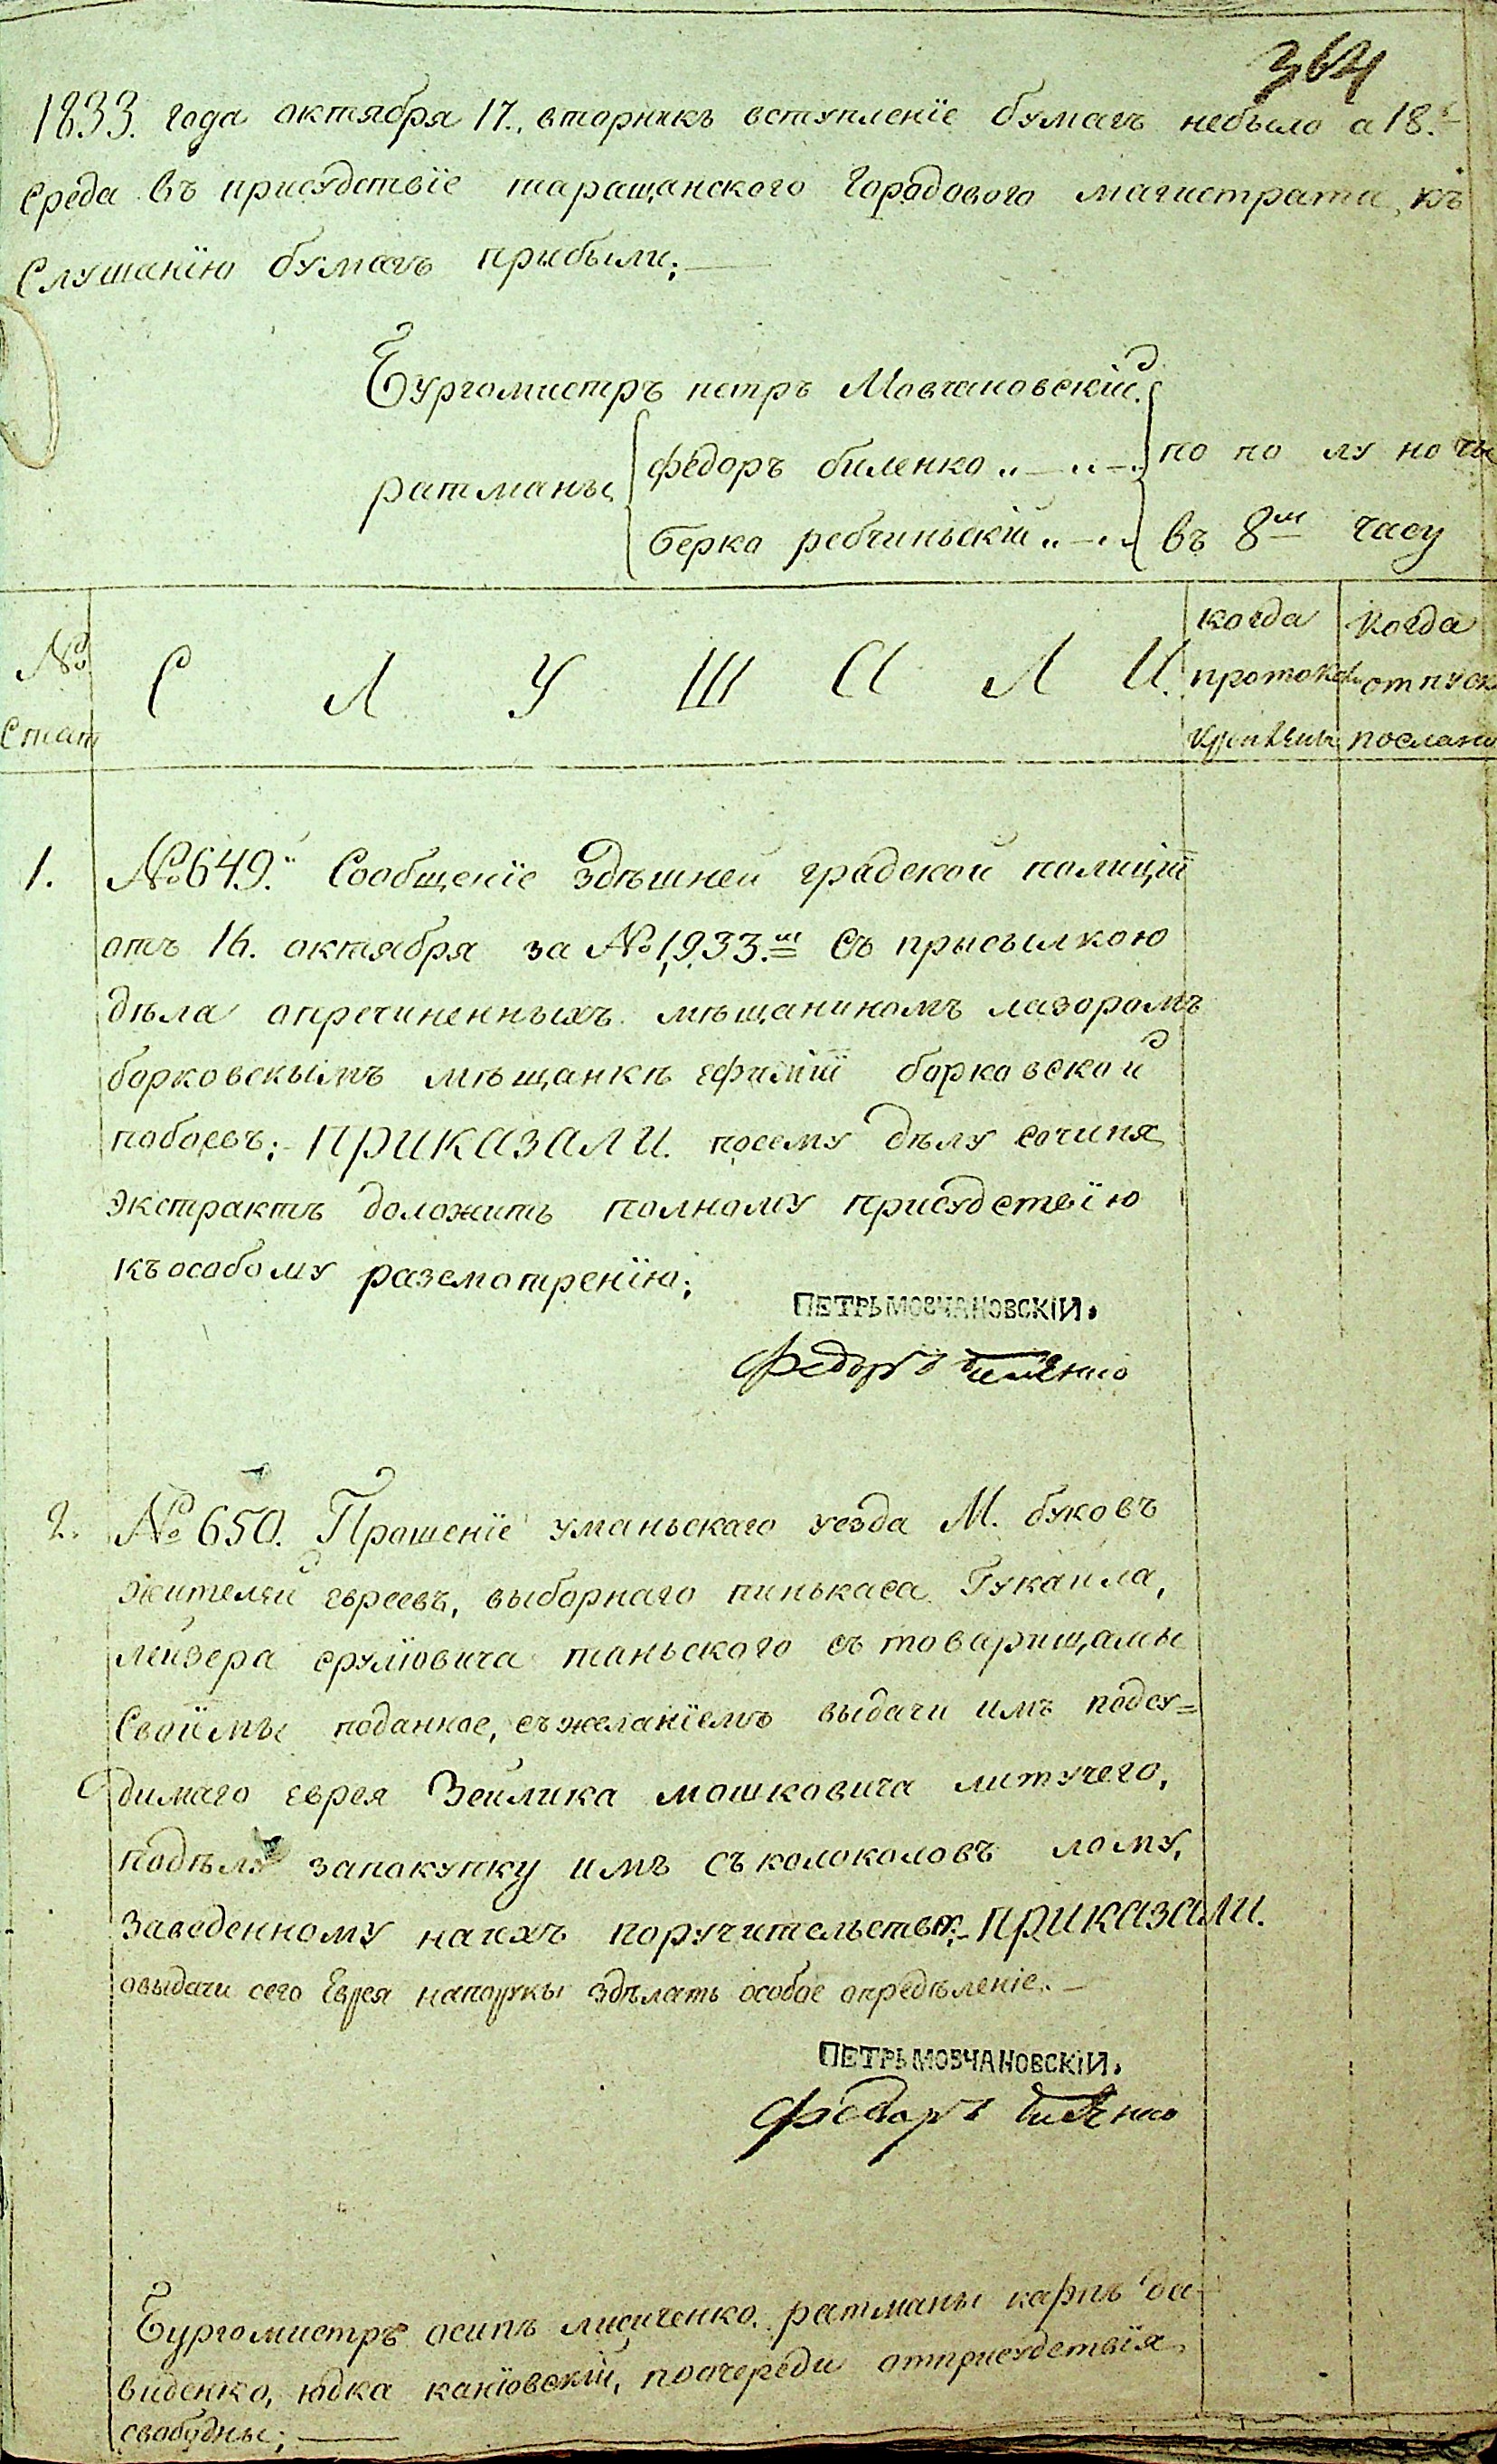 364
1833. года октября 17., вторникъ вступленіе бумагъ небыло а 18.
Среда въ присудствіе таращанского Городового магистрата, къ
Слушанїю бумагъ прибыли;
Бургомистръ петръ Мовчановскій.
ратманы
федоръ биленко
по полу ночы
берко ребчиньскій
въ 8м часу
№ Стат
С Л У Ш А Л И.
когда протокол
Когда отпуск послано
1. №649. Сообщенїе Здѣшней градской полиціи
отъ 16. октября за №1,933.м Съ присылкою
дѣла опречиненныхъ мѣщаниномъ лазоромъ
борковскымъ мѣщанкѣ ефиміи борковской
побоевъ; ПРИКАЗАЛИ. посему дѣлу сочиня
экстрактъ доложить полному присудствїю
къ особому разсмотренїю;
ПЕТРЬ МОВЧАНОВСКІИ.
Федоръ Биленко
2. № 650. Прошенїе уманьскаго уезда М. буковъ
жителей евреевъ, выборнаго пинькаса Гукаила,
лейзера срулїовича таньского съ товарищамы
Своїмы поданное, съ желанїемъ выдачи имъ подсу=
димаго еврея Зейлика мошковича литучего,
подѣлу запокупку имъ съ колоколовъ лому,
Заведенному наихъ поручительство; ПРИКАЗАЛИ.
овыдачи сего Еврея напорукы здѣлать особое опредѣленіе.
ПЕТРЬ МОВЧАНОВСКІИ.
Федоръ Биленко
Бургомистръ осипъ лисиченко. ратманы карпъ да-
виденко, юдка канїовскій, поочереди отприсудствїя
свабудны;